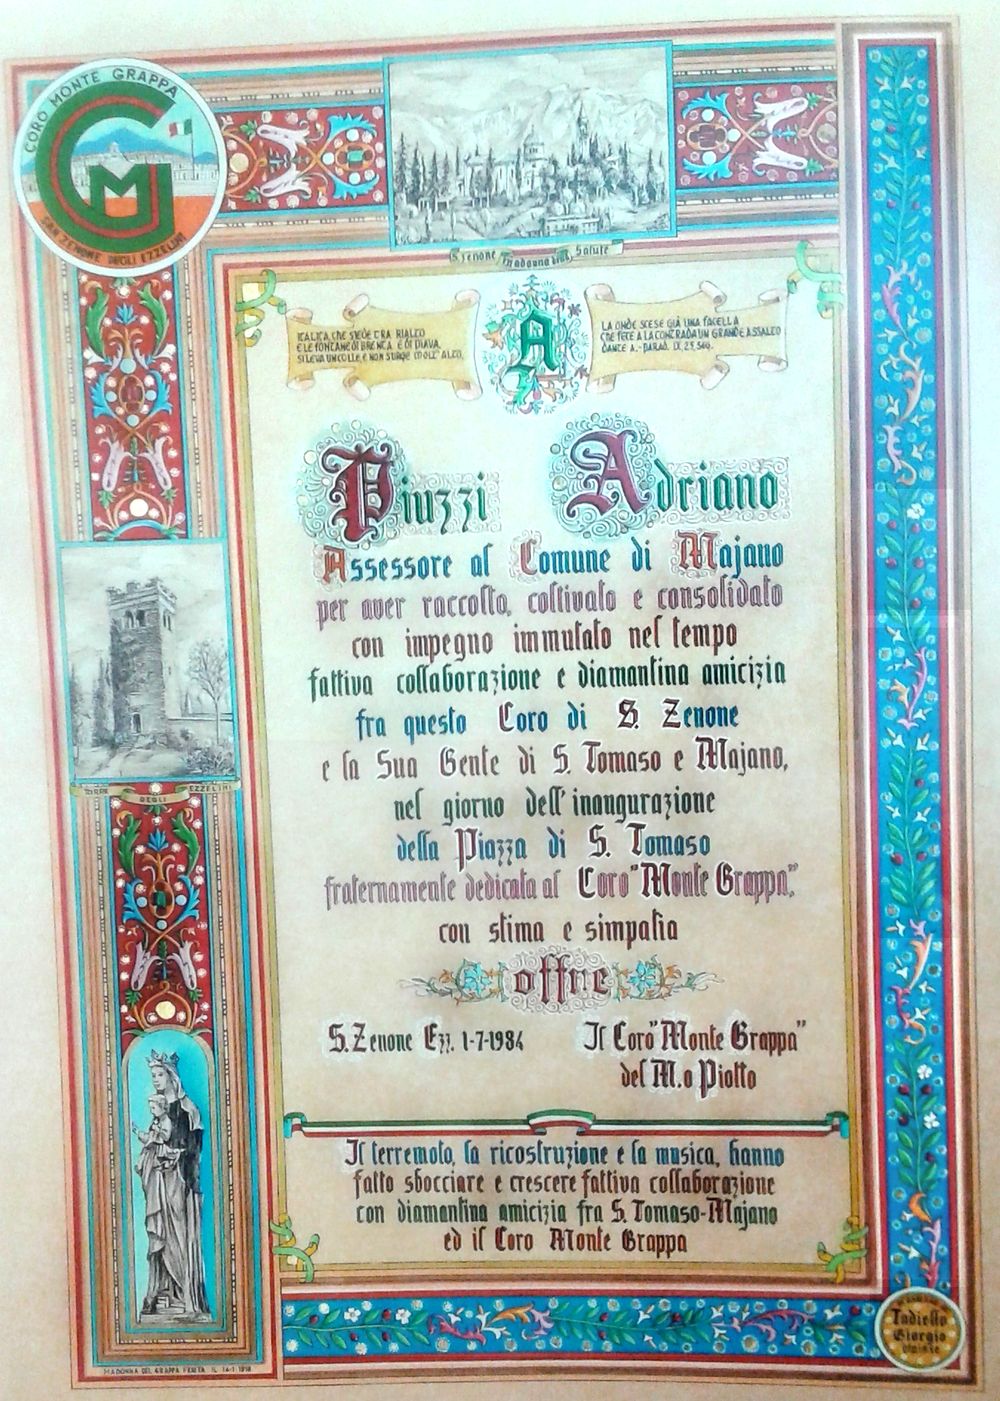 CORO MONTE GRAPPA
GM
SAN ZENONE DEGLI EZZELINI
S. Zenone Madonna della Salute
ITALICA, CHE SIEDE TRA RIALTO
E LE FONTANE DI BRENTA E DI PIAVA,
SI LEVA UN COLLE E NON SURGE MOLT' ALTO,
A
LA ONDE SCESE GIÀ UNA FACELLA
CHE FECE A LA CONTRADA UN GRANDE ASSALTO
DANTE A. - PARAD. IX. 25,
Piuzzi Adriano
Assessore al Comune di Majano
per aver raccolto, coltivato e consolidato
con impegno immutato nel tempo
fattiva collaborazione e diamantina amicizia
fra questo Coro di S. Zenone
e la Sua Gente di S. Tomaso e Majano,
nel giorno dell' inaugurazione
della Piazza di S. Tomaso
fraternamente dedicata al Coro "Monte Grappa",
con stima e simpatia
offre
S. Zenone Ezz. 1-7-1984
Il Coro "Monte Grappa"
del M.o Piotto
TORRE DEGLI EZZELINI
Il terremoto, la ricostruzione e la musica, hanno
fatto sbocciare e crescere fattiva collaborazione
con diamantina amicizia fra S. Tomaso-Majano
ed il Coro Monte Grappa
MADONNA DEL GRAPPA FERITA IL 14-1-1918
Tadiello
Giorgio